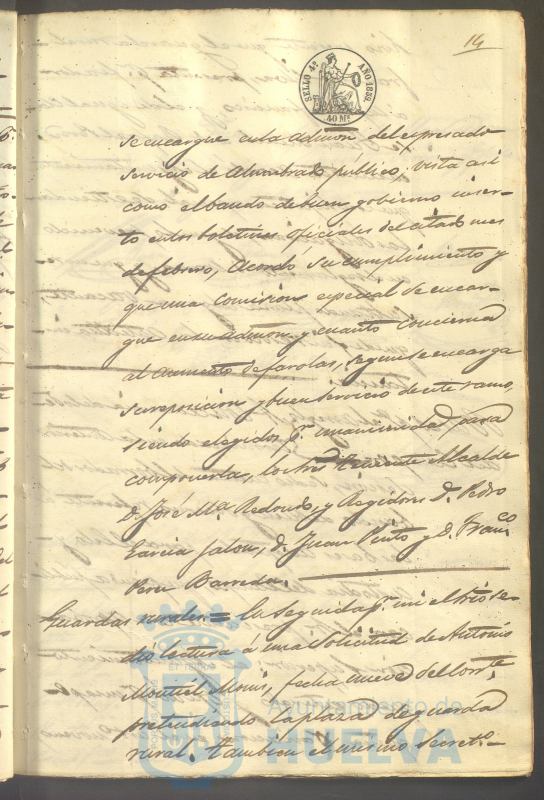 14
SELLO 4º AÑO 1859
40 Ms.
se encargue en la admon del expresado
servicio de Alumbrado público, vista asi
como el bando de buen gobierno inser-
to en los boletines oficiales del citado mes
de febrero, Acordó su cumplimiento y
que una comision especial se encar-
gue en su admon y cuanto concierna
al aumento de farolas, segun se encarga
su reposicion y buen servicio de este ramo,
siendo elegidos pr. unanimidad para
componerla, los Teniente Alcalde
D. José Ma. Redondo, y Regidores D. Pedro
Garcia Jalon, D. Juan Pinto y D. Franco
Perez Barreda.
Guardas rurales = En seguida pr. mi el Srio se
dio lectura á una solicitud de Antonio
Montiel, fecha nueve del corrte.
pretendiendo la plaza de guarda
rural. Tambien el mismo Secreto.-
Ayuntamiento de
HUELVA